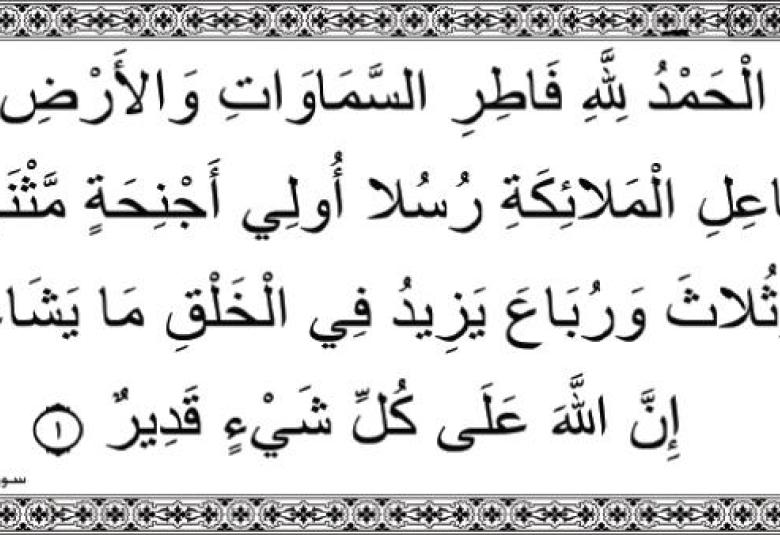 الْحَمْدُ لِلَّهِ فَاطِرِ السَّمَاوَاتِ وَالأَرْضِ
الْمَلائِكَةِ رُسُلا أُولِي أَجْنِحَةٍ
وَرُبَاعَ يَزِيدُ فِي الْخَلْقِ مَا
إِنَّ اللَّهَ عَلَى كُلِّ شَيْءٍ قَدِيرٌ ١